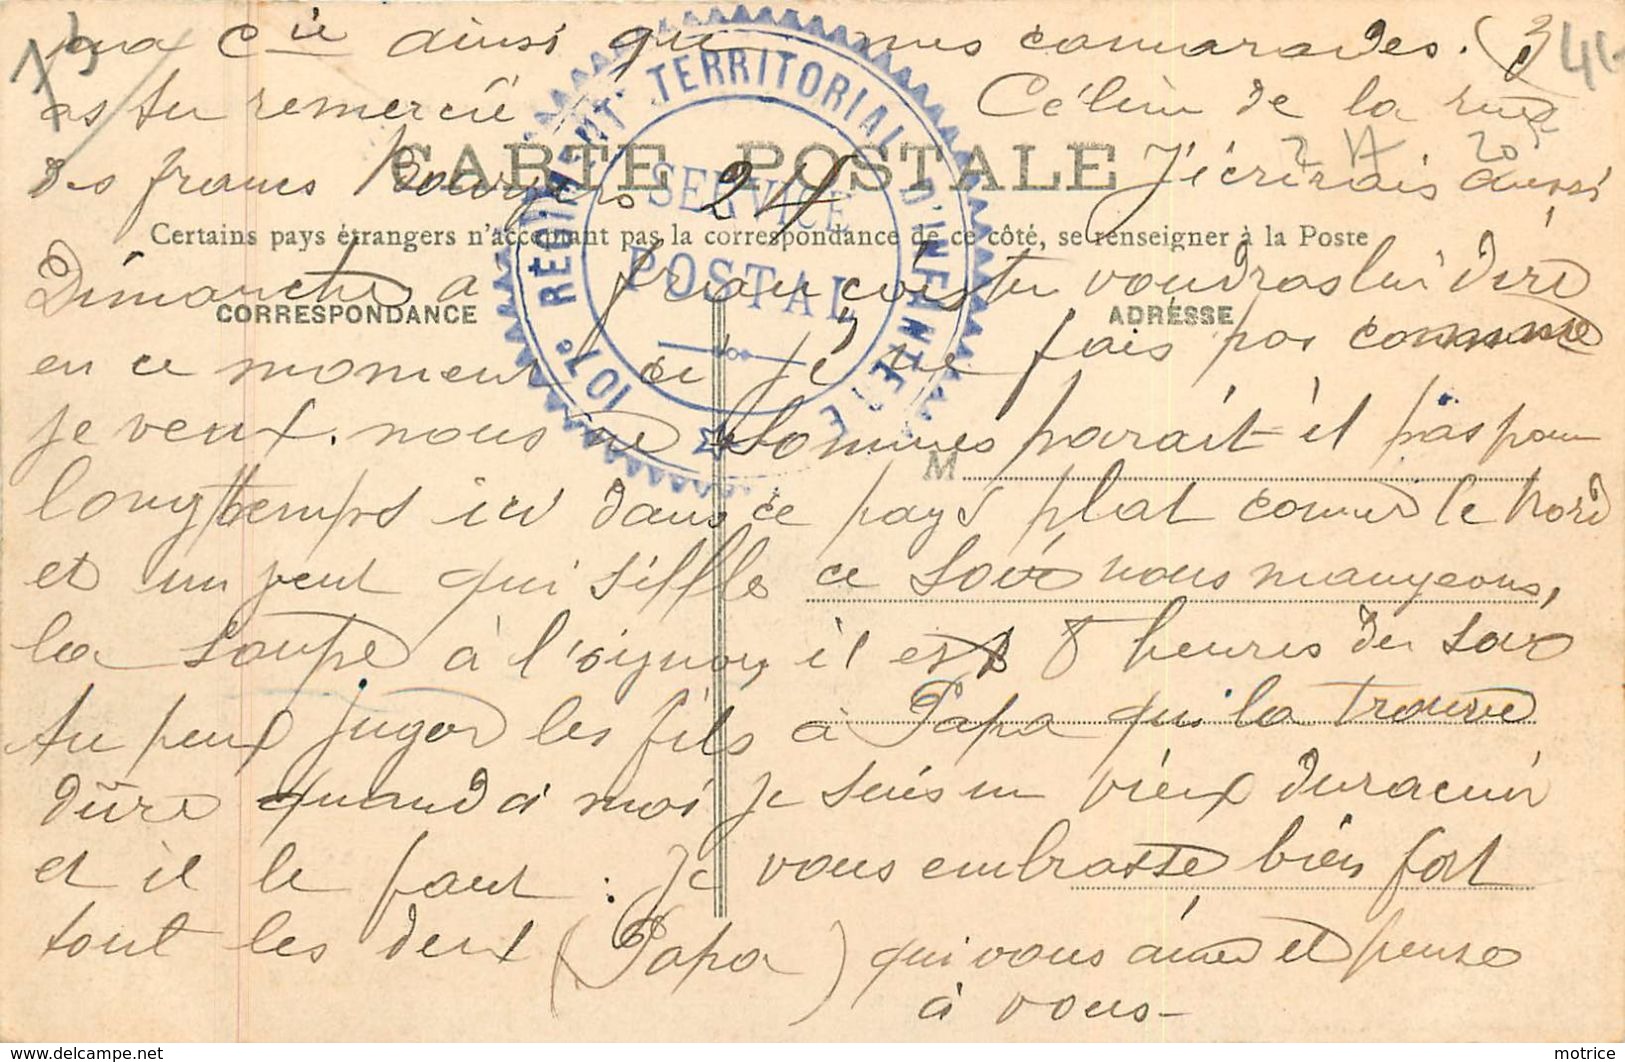 ma Cie ainsi que mes camarades. (3
as tu remercié Céline de la rue
des francs Bourgeois 24 J'écrirais aussi
CARTE POSTALE
Certains pays étrangers n'acceptant pas la correspondance de ce côté, se renseigner à la Poste
Dimanche a François tu voudras lui dire
CORRESPONDANCE
ADRESSE
en ce moment ci je ne fais pas comme
je veux. nous ne sommes parait il pas pour
M
longtemps ici dans ce pays plat comme le Nord
et un vent qui siffle ce soir nous mangeons,
la soupe à l'oignon, il est 8 heures du soir
tu peux juger les fils à Papa qui la trouve
dure quand à moi je suis un vieux dur a cuir
et il le faut : Je vous embrasse bien fort
tout les deux (Papa) qui vous aime et pense
à vous-
107e RÉGIMENT TERRITORIAL D'INFANTERIE
SERVICE
POSTAL
motrice